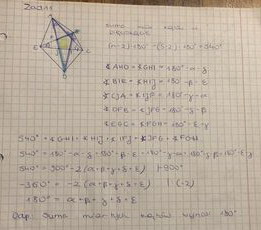 Zad.
suma miar kątów w pięciokącie
(n-2)·180° = (5-2)·180° = 540°
∢GHI = 180°-α-
∢HIJ = 180°-β-ε
∢CJA = ∢IJF = 180°-γ-α
∢JFG = 180°-
∢FGH = 180°-ε-γ
540° = ∢GHI + ∢HIJ + ∢IJF + ∢JFG + ∢FGH
540° = 180°-α- +180°-β-ε+180°-γ-α+180°- +180°-ε-γ
540° = 900°-2(α+β+γ+δ+ε) |-900°
-360° = -2(α+β+γ+δ+ε) |:(-2)
180° = α+β+γ+δ+ε
Odp. Suma miar tych kątów wynosi 180°